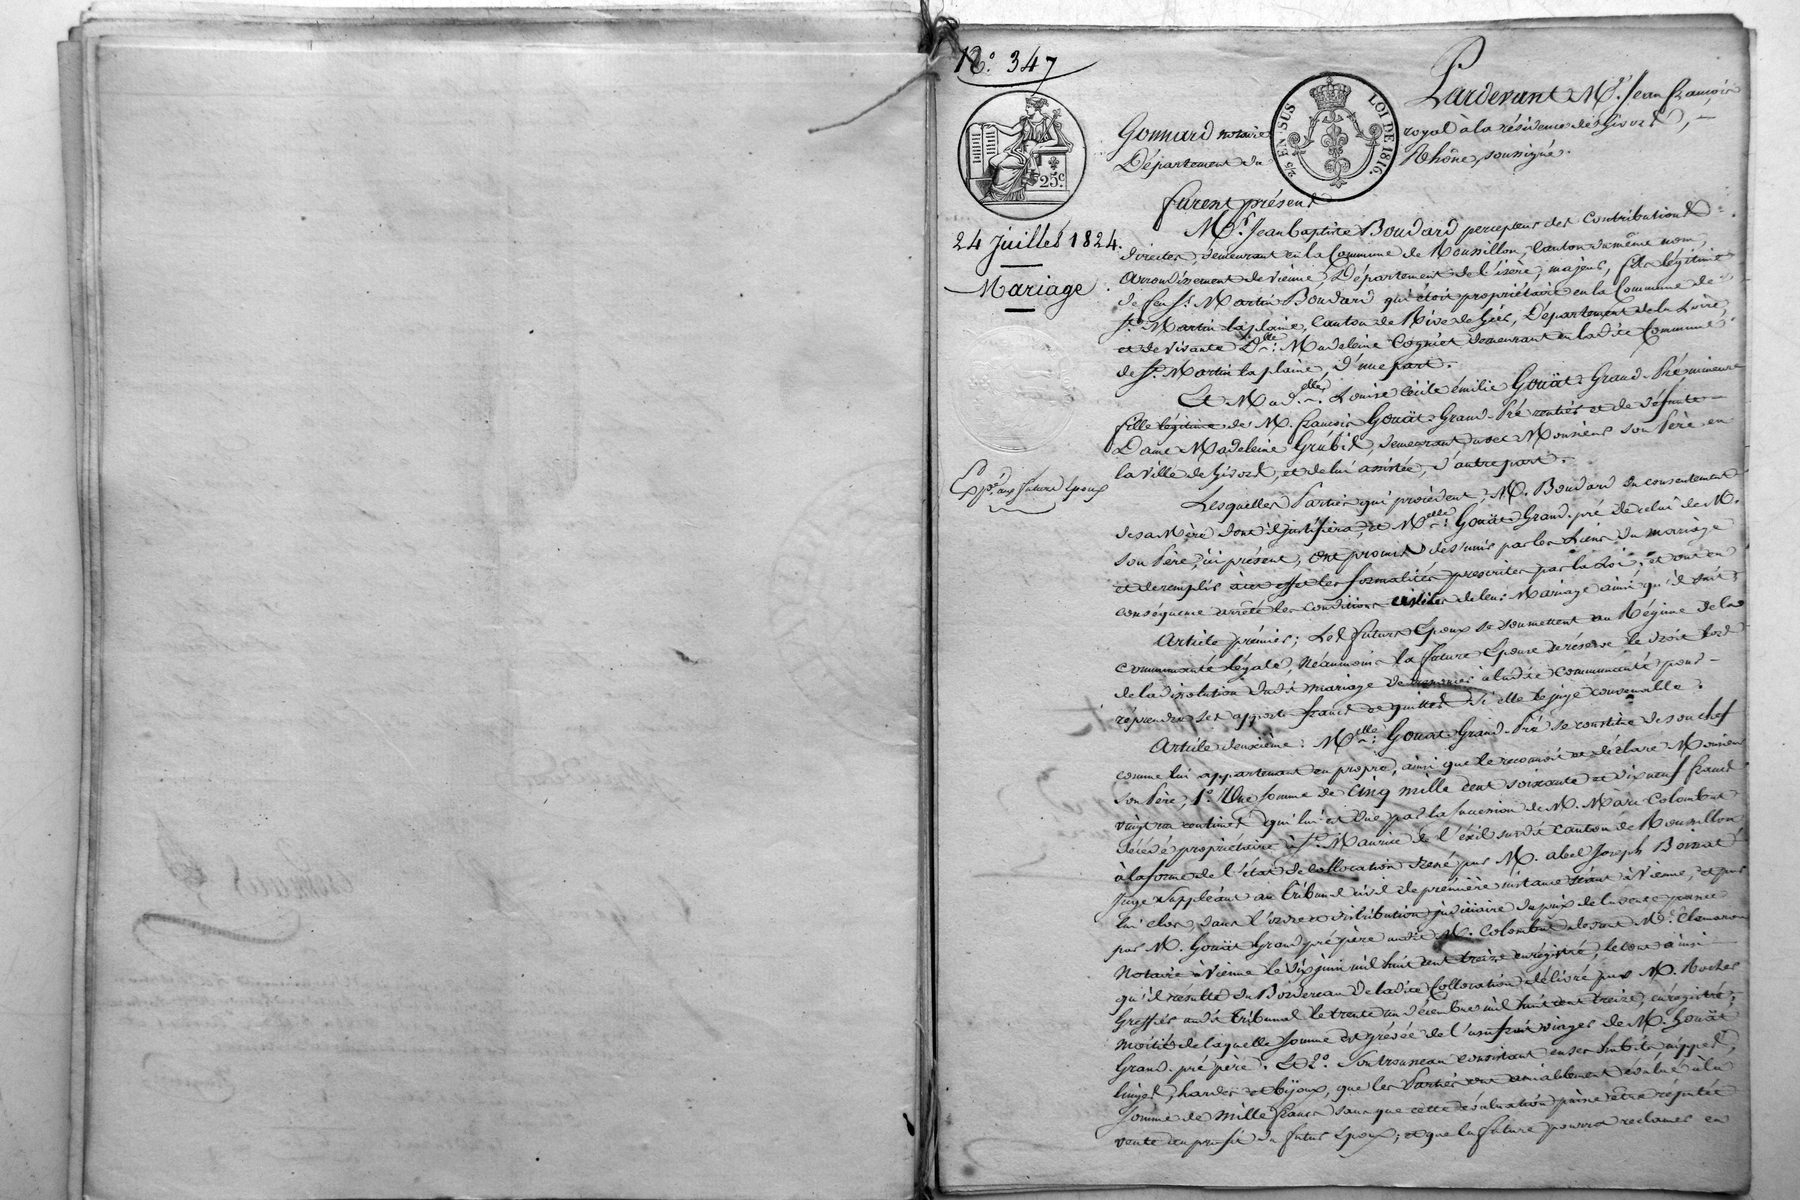 N.° 347
24 Juillet 1824.
Mariage
Exp.é aux futurs Epoux
25c.
2/5 EN SUS
LOI DE 1816.
Pardevant M.e Jean françois
Gonnard notaire royal à la résidence de Givors,
Département du Rhône, soussigné.
furent présens
M.r Jean baptiste Boudard percepteur des Contributions
directes, demeurant en la Commune de Roussillon, Canton du même nom,
arrondissement de Vienne, Département de l'isère, majeur, fils légitime
de feu S.r Martin Boudard qui étoit propriétaire en la Commune de
S.t Martin la plaine, Canton de Rive de Gier, Département de la Loire,
et de vivante D.lle Madeleine Cognet demeurant en la dite Commune
de S.t Martin la plaine, d'une part.
Et Mad.elle Louise Cécile émilie Gouät-Grand-Pré mineure
fille légitime de M. françois Gouät-Grand-Pré rentier et de défunte
Dame Madeleine Grubit, demeurant avec Monsieur son Père en
la ville de Givors, et de lui assistée, d'autre part.
Lesquelles Parties qui procèdent, M. Boudard du consentement
de sa Mère dont il justifiera, et M.elle Gouät-Grand-pré de celui de M.
son Père, ici présent, ont promis de s'unir par les liens du mariage
et de remplir à cet effet les formalités prescrites par la Loi; et ont en
conséquence arrêté les conditions civiles de leur Mariage ainsi qu'il suit:
Article premier; Les futurs Epoux se soumettent au Régime de la
communauté légale Néanmoins la future Epouse se réserve le droit lors
de la dissolution dudit mariage de renoncer à ladite communauté pour
reprendre ses apports francs et quittes si elle le juge convenable.
Article deuxième: M.elle Gouat-Grand-Pré se constitue de son chef
comme lui appartenant en propre, ainsi que le reconnoit et déclare Monsieur
son Père, 1.° Une somme de Cinq mille cent soixante et dix neuf francs
vingt un centimes qui lui est due par la succession de M. Marc Colombat
décédé propriétaire à S.t Maurice de l'exil susdit canton de Roussillon
à la forme de l'état de collocation dressé par M. abel Joseph Boissat
juge suppléant au tribunal civil de première instance séant à Vienne, et par
lui clos dans l'ordre et distribution judiciaire du prix de la vente passée
par M. Gouät Grand pré père audit M. Colombat devant M.e Clemaron
Notaire à Vienne le dix juin mil huit cent treize enregistré, le tout ainsi
qu'il résulte du Bordereau de ladite Collocation délivré par M. Rocher
Greffier audit tribunal le trente un décembre mil huit cent treize, enregistré;
moitié de laquelle somme est grévée de l'usufruit viager de M. Gouät
Grand-pré père. Et 2.° son trousseau consistant en ses habits, nippes,
linges, hardes et bijoux, que les Parties ont amiablement évalué à la
somme de mille francs sans que cette évaluation puisse être réputée
vente au profit du futur Epoux; et que la future pourra réclamer en